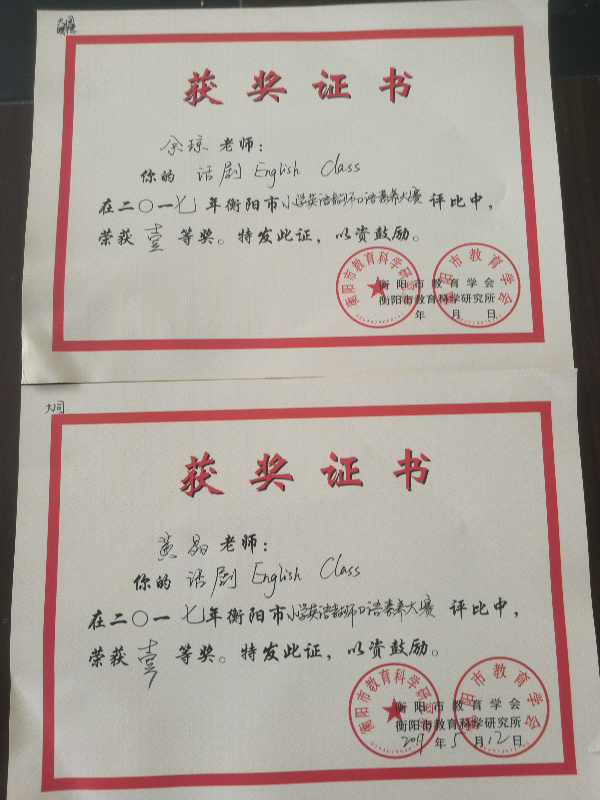 获奖证书
余琼老师：
你的 话剧 English Class
在二〇一七年衡阳市小学英语教师口语素养大赛 评比中，
荣获 壹 等奖。特发此证，以资鼓励。
衡阳市教育学会
衡阳市教育科学研究所
年 月 日
大同
获奖证书
黄晶老师：
你的 话剧 English Class
在二〇一七年衡阳市小学英语教师口语素养大赛 评比中，
荣获 壹 等奖。特发此证，以资鼓励。
衡阳市教育学会
衡阳市教育科学研究所
2017年5月12日